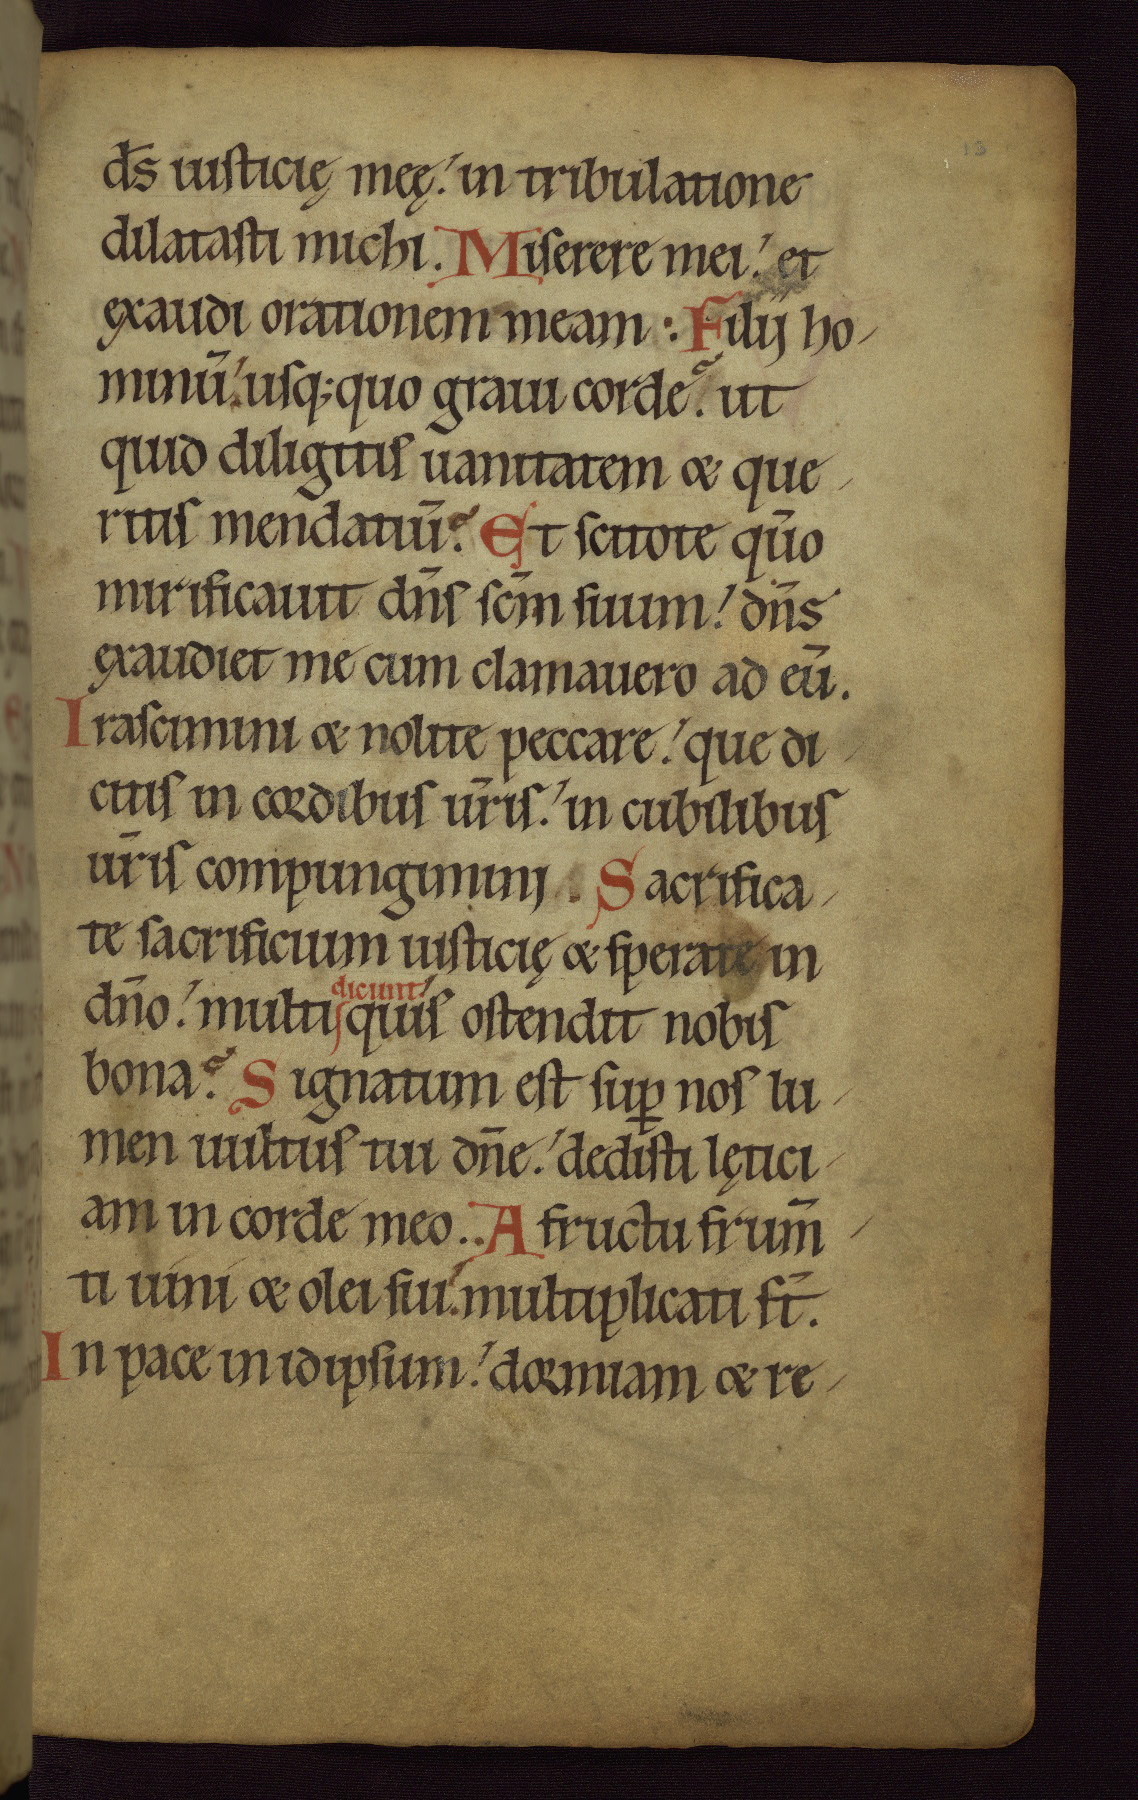 13
d̄s iusticię meę:' in tribulatione
dilatasti michi. Miserere mei:' et
exaudi orationem meam : Filij ho-
minū:' usq; quo graui corde? ut
quid diligitis uanitatem & que-
ritis mendatiū? Et scitote qūo
mirificauit dn̄s sc̄m suum:' dn̄s
exaudiet me cum clamauero ad eū.
Irascimini & nolite peccare:' que di-
citis in cordibus ur̄is:' in cubilibus
ur̄is compungimini . Sacrifica-
te sacrificium iusticię & sperate in
dn̄o:' multi dicunt:' quis ostendit nobis
bona? Signatum est suꝑ nos lu-
men uultus tui dn̄e:' dedisti lętici-
am in corde meo.. A fructu frum̄-
ti uini & olei sui:' multiplicati st̄.
In pace in idipsum:' dormiam & re-